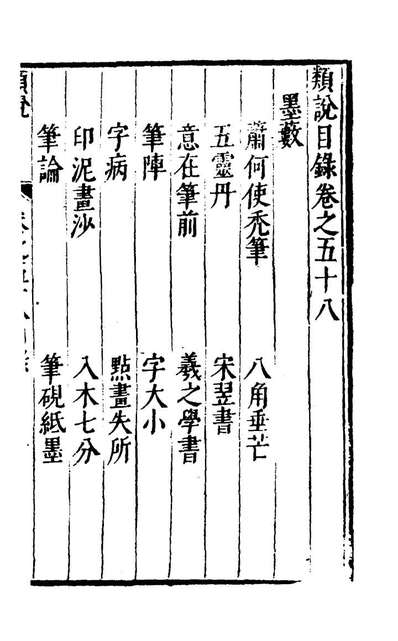 類說目錄卷之五十八
墨藪
蕭何使禿筆 八角垂芒
五靈丹 宋翌書
意在筆前 羲之學書
筆陣 字大小
字病 點畫失所
印泥畫沙 入木七分
筆論 筆硯紙墨